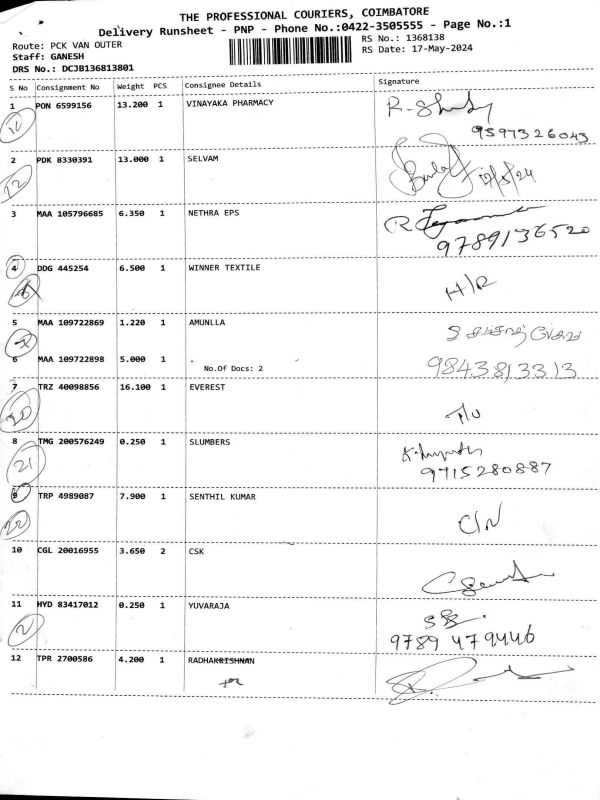 THE PROFESSIONAL COURIERS, COIMBATORE
Delivery Runsheet - PNP - Phone No.:0422-3505555 - Page No.:1
Route: PCK VAN OUTER
RS No.: 1368138
Staff: GANESH
RS Date: 17-May-2024
DRS No.: DCJB136813801
S No Consignment No Weight PCS Consignee Details Signature
1 PON 6599156 13.200 1 VINAYAKA PHARMACY
9597326043
2 PDK 8330391 13.000 1 SELVAM
12
3 MAA 105796685 6.350 1 NETHRA EPS
9789136520
4 DDG 445254 6.500 1 WINNER TEXTILE
H/R
5 MAA 109722869 1.220 1 AMUNLLA
6 MAA 109722898 5.000 1 .
No.Of Docs: 2
9843813313
7 TRZ 40098856 16.100 1 EVEREST
20
8 TMG 200576249 0.250 1 SLUMBERS
21
9715280887
9 TRP 4989087 7.900 1 SENTHIL KUMAR
22
C/N
10 CGL 20016955 3.650 2 CSK
11 HYD 83417012 0.250 1 YUVARAJA
2
9789 479446
12 TPR 2700586 4.200 1 RADHAKRISHNAN